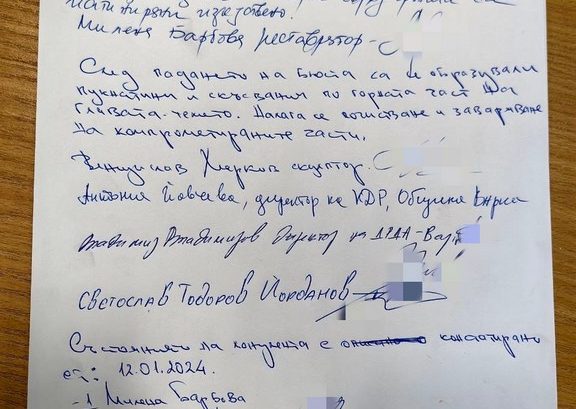 Милена Барбова реставратор -
След падането на бюста са се образували
пукнатини и скъсвания по горната част на
главата - челото. Налага се почистване и заваряване
на компрометираните части.
Венцислав Марков скулптор.
Антония Йовчева, директор на КДР, Община Варна
Владимир Владимиров Директор на ДРДА - Варна
Светослав Тодоров Йорданов
Състоянието на монумента е констатирано
от: 12.01.2024.
- 1 Милена Барбова